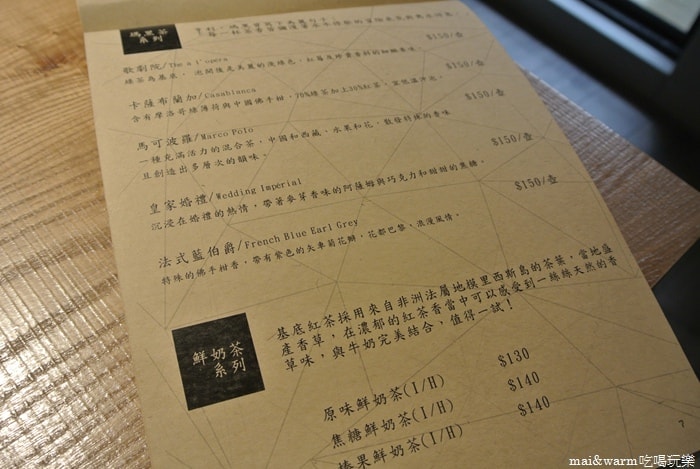 瑪黑茶
系列
歌劇院/The a l'opera
$150/壺
綠茶為基底,
卡薩布蘭加/Casablanca
$150/壺
含有摩洛哥綠薄荷與中國佛手柑,70%綠茶加上30%紅茶,
馬可波羅/Marco Polo
$150/壺
一種充滿活力的混合茶,中國和西藏,水果和花,散發特殊的香味
且創造出多層次的韻味。
皇家婚禮/Wedding Imperial
$150/壺
沉浸在婚禮的熱情,帶著麥芽香味的阿薩姆與巧克力和甜甜的焦糖。
法式藍伯爵/French Blue Earl Grey
$150/壺
特殊的佛手柑香,帶有紫色的矢車菊花瓣,花都巴黎,浪漫風情。
鮮奶茶
系列
基底紅茶採用來自非洲法屬地模里西斯島的茶葉,當地盛
產香草,在濃郁的紅茶香當中可以感受到一絲絲天然的香
草味,與牛奶完美結合,值得一試!
原味鮮奶茶(I/H) $130
焦糖鮮奶茶(I/H) $140
榛果鮮奶茶(I/H) $140
7
mai&warm吃喝玩樂